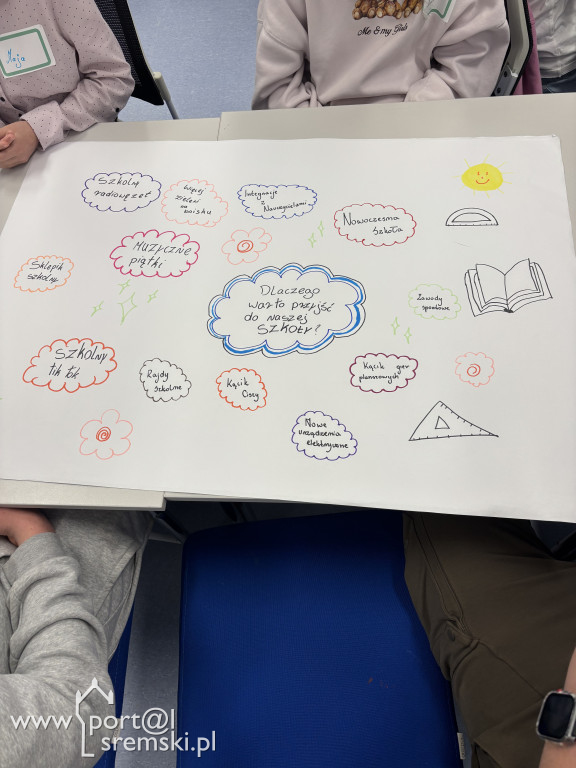 Maja
Me & my Girls
Szkolny
radiowęzeł
Więcej
zieleni
na
boisku
Integracje
z
Nauczycielami
Nowoczesna
Szkoła
Sklepik
szkolny
MUZYCZNE
piątki
DLaczego
warto przyjść
do naszej
SZKOŁY?
Zawody
sportowe
SZKOLNY
tik tok
Rajdy
szkolne
Kącik
Ciszy
Kącik gier
planszowych
Nowe
urządzenia
elektryczne
www.sport@l
sremski.pl